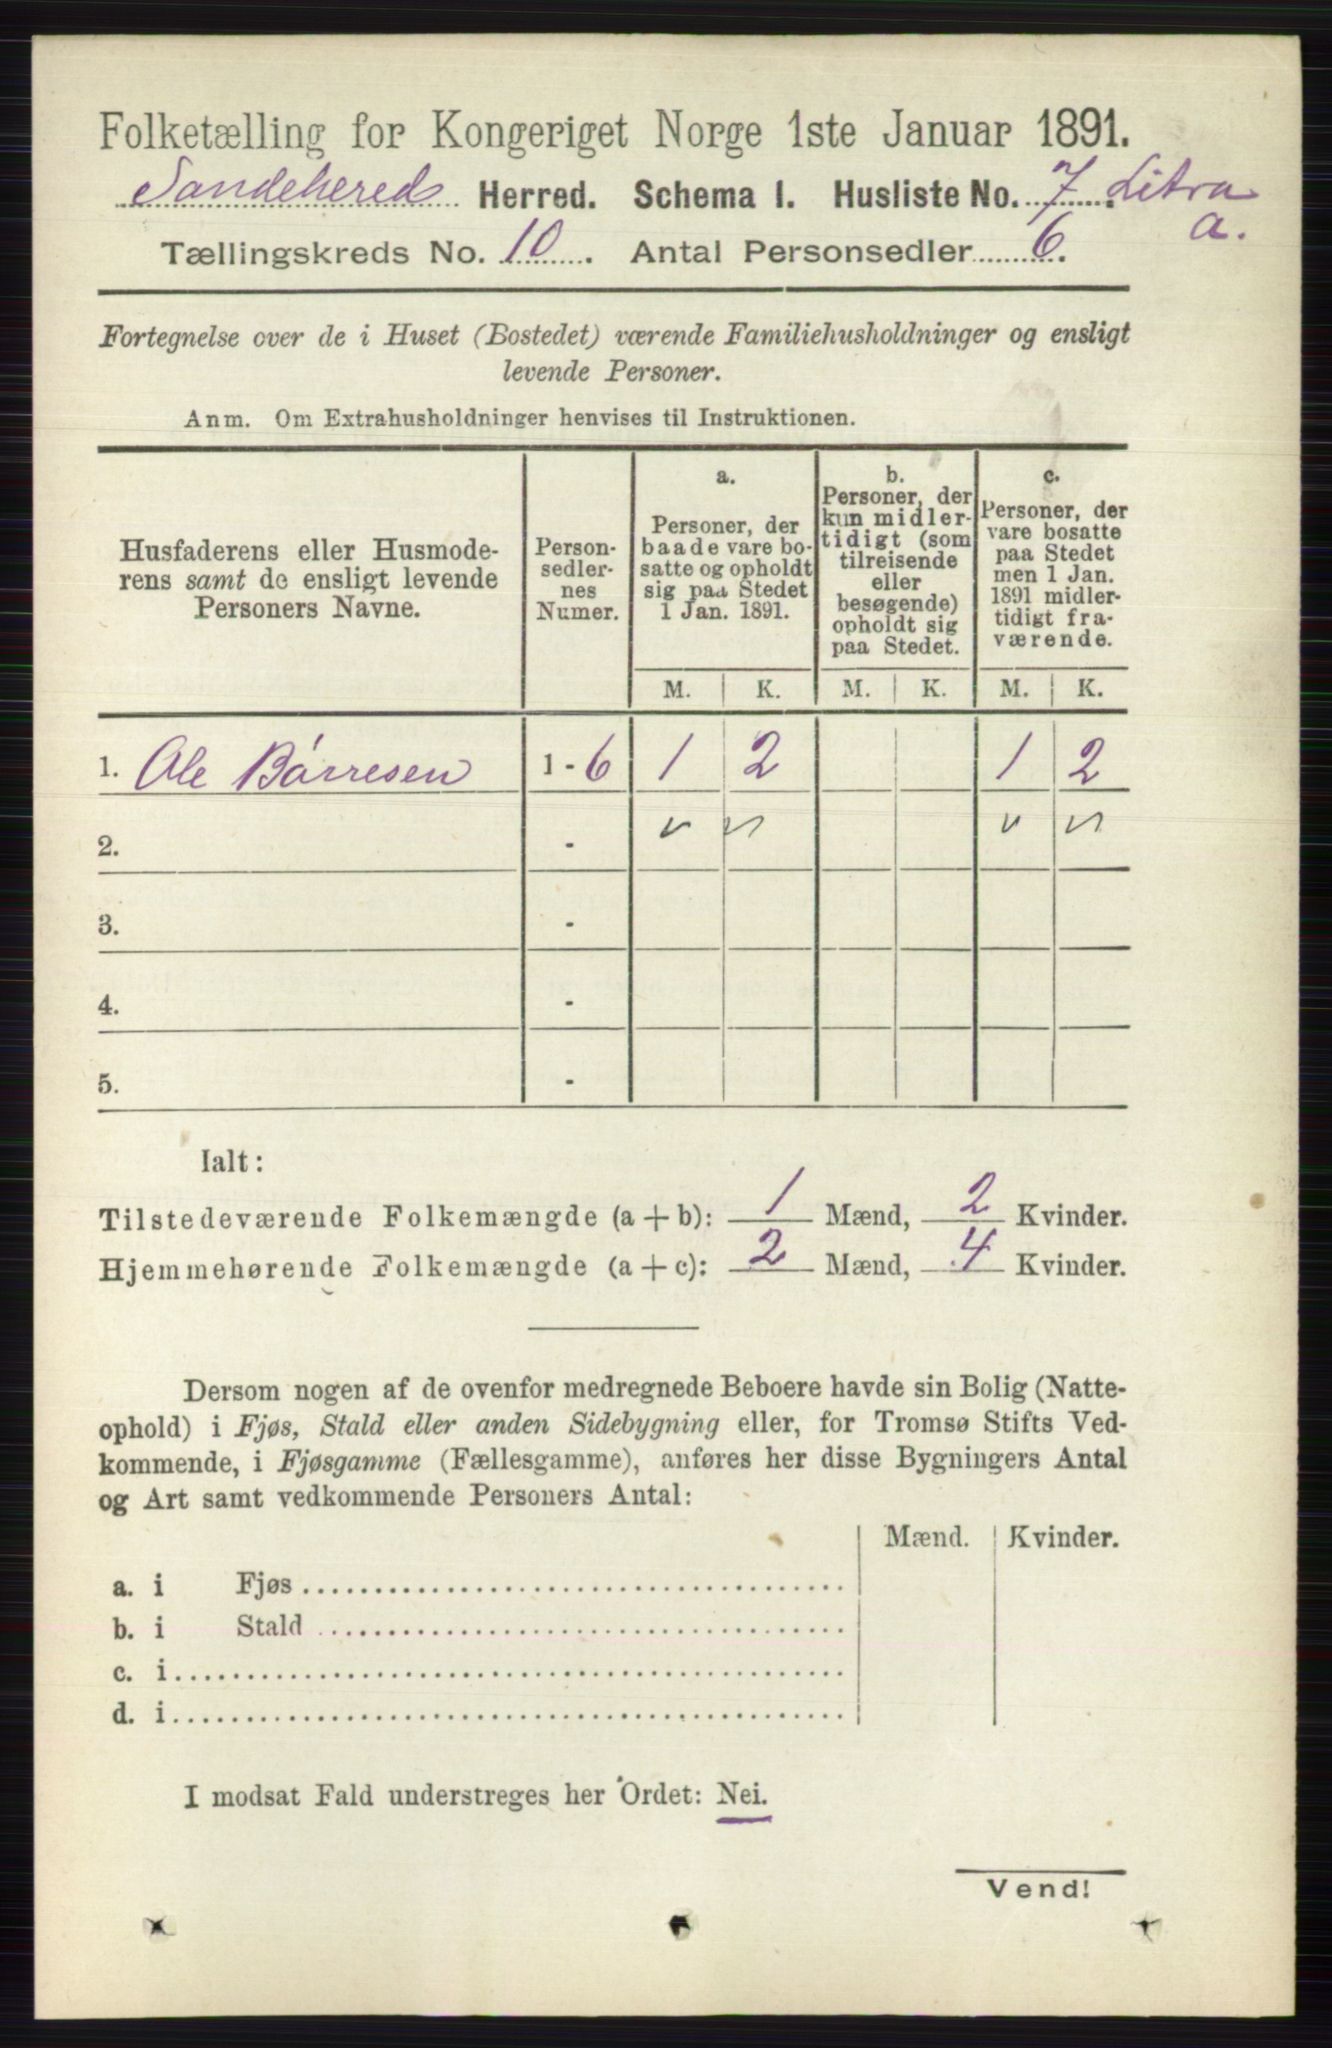 Folketælling for Kongeriget Norge 1ste Januar 1891.
Sandehereds Herred. Schema I. Husliste No. 7 Litra
a.
Tællingskreds No. 10. Antal Personsedler 6.
Fortegnelse over de i Huset (Bostedet) værende Familiehusholdninger og ensligt
levende Personer.
Anm. Om Extrahusholdninger henvises til Instruktionen.
Husfaderens eller Husmode-
rens samt de ensligt levende
Personers Navne.
Person-
sedler-
nes
Numer.
a.
Personer, der
baade vare bo-
satte og opholdt
sig paa Stedet
1 Jan. 1891.
b.
Personer, der
kun midler-
tidigt (som
tilreisende
eller
besøgende)
opholdt sig
paa Stedet.
c.
Personer, der
vare bosatte
paa Stedet
men 1 Jan.
1891 midler-
tidigt fra-
værende.
M. K. M. K. M. K.
1. Ole Børresen 1 - 6 1 2 1 2
2. -
3. -
4. -
5. -
Ialt:
Tilstedeværende Folkemængde (a + b): 1 Mænd, 2 Kvinder.
Hjemmehørende Folkemængde (a + c): 2 Mænd, 4 Kvinder.
Dersom nogen af de ovenfor medregnede Beboere havde sin Bolig (Natte-
ophold) i Fjøs, Stald eller anden Sidebygning eller, for Tromsø Stifts Ved-
kommende, i Fjøsgamme (Fællesgamme), anføres her disse Bygningers Antal
og Art samt vedkommende Personers Antal:
Mænd. Kvinder.
a. i Fjøs
b. i Stald
c. i
d. i
I modsat Fald understreges her Ordet: Nei.
Vend!